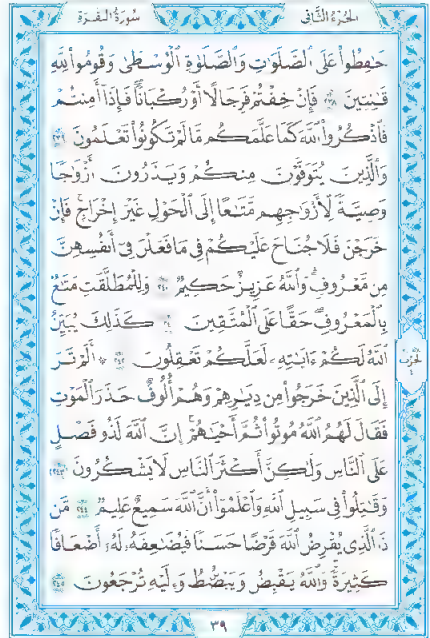 الجُزْءُ الثَّانِي
سُورَةُ البَقَرَةِ
حَٰفِظُوا۟ عَلَى ٱلصَّلَوَٰتِ وَٱلصَّلَوٰةِ ٱلْوُسْطَىٰ وَقُومُوا۟ لِلَّهِ
قَٰنِتِينَ ٢٣٨ فَإِنْ خِفْتُمْ فَرِجَالًا أَوْ رُكْبَانًا ۖ فَإِذَآ أَمِنتُمْ
فَٱذْكُرُوا۟ ٱللَّهَ كَمَا عَلَّمَكُم مَّا لَمْ تَكُونُوا۟ تَعْلَمُونَ ٢٣٩
وَٱلَّذِينَ يُتَوَفَّوْنَ مِنكُمْ وَيَذَرُونَ أَزْوَٰجًا
وَصِيَّةً لِّأَزْوَٰجِهِم مَّتَٰعًا إِلَى ٱلْحَوْلِ غَيْرَ إِخْرَاجٍ ۚ فَإِنْ
خَرَجْنَ فَلَا جُنَاحَ عَلَيْكُمْ فِى مَا فَعَلْنَ فِىٓ أَنفُسِهِنَّ
مِن مَّعْرُوفٍ ۗ وَٱللَّهُ عَزِيزٌ حَكِيمٌ ٢٤٠ وَلِلْمُطَلَّقَٰتِ مَتَٰعٌۢ
بِٱلْمَعْرُوفِ ۖ حَقًّا عَلَى ٱلْمُتَّقِينَ ٢٤١ كَذَٰلِكَ يُبَيِّنُ
ٱللَّهُ لَكُمْ ءَايَٰتِهِۦ لَعَلَّكُمْ تَعْقِلُونَ ٢٤٢ ۞ أَلَمْ تَرَ
إِلَى ٱلَّذِينَ خَرَجُوا۟ مِن دِيَٰرِهِمْ وَهُمْ أُلُوفٌ حَذَرَ ٱلْمَوْتِ
فَقَالَ لَهُمُ ٱللَّهُ مُوتُوا۟ ثُمَّ أَحْيَٰهُمْ ۚ إِنَّ ٱللَّهَ لَذُو فَضْلٍ
عَلَى ٱلنَّاسِ وَلَٰكِنَّ أَكْثَرَ ٱلنَّاسِ لَا يَشْكُرُونَ ٢٤٣
وَقَٰتِلُوا۟ فِى سَبِيلِ ٱللَّهِ وَٱعْلَمُوٓا۟ أَنَّ ٱللَّهَ سَمِيعٌ عَلِيمٌ ٢٤٤ مَّن
ذَا ٱلَّذِى يُقْرِضُ ٱللَّهَ قَرْضًا حَسَنًا فَيُضَٰعِفَهُۥ لَهُۥٓ أَضْعَافًا
كَثِيرَةً ۚ وَٱللَّهُ يَقْبِضُ وَيَبْصُۜطُ وَإِلَيْهِ تُرْجَعُونَ ٢٤٥
الحِزْب
٤
٣٩